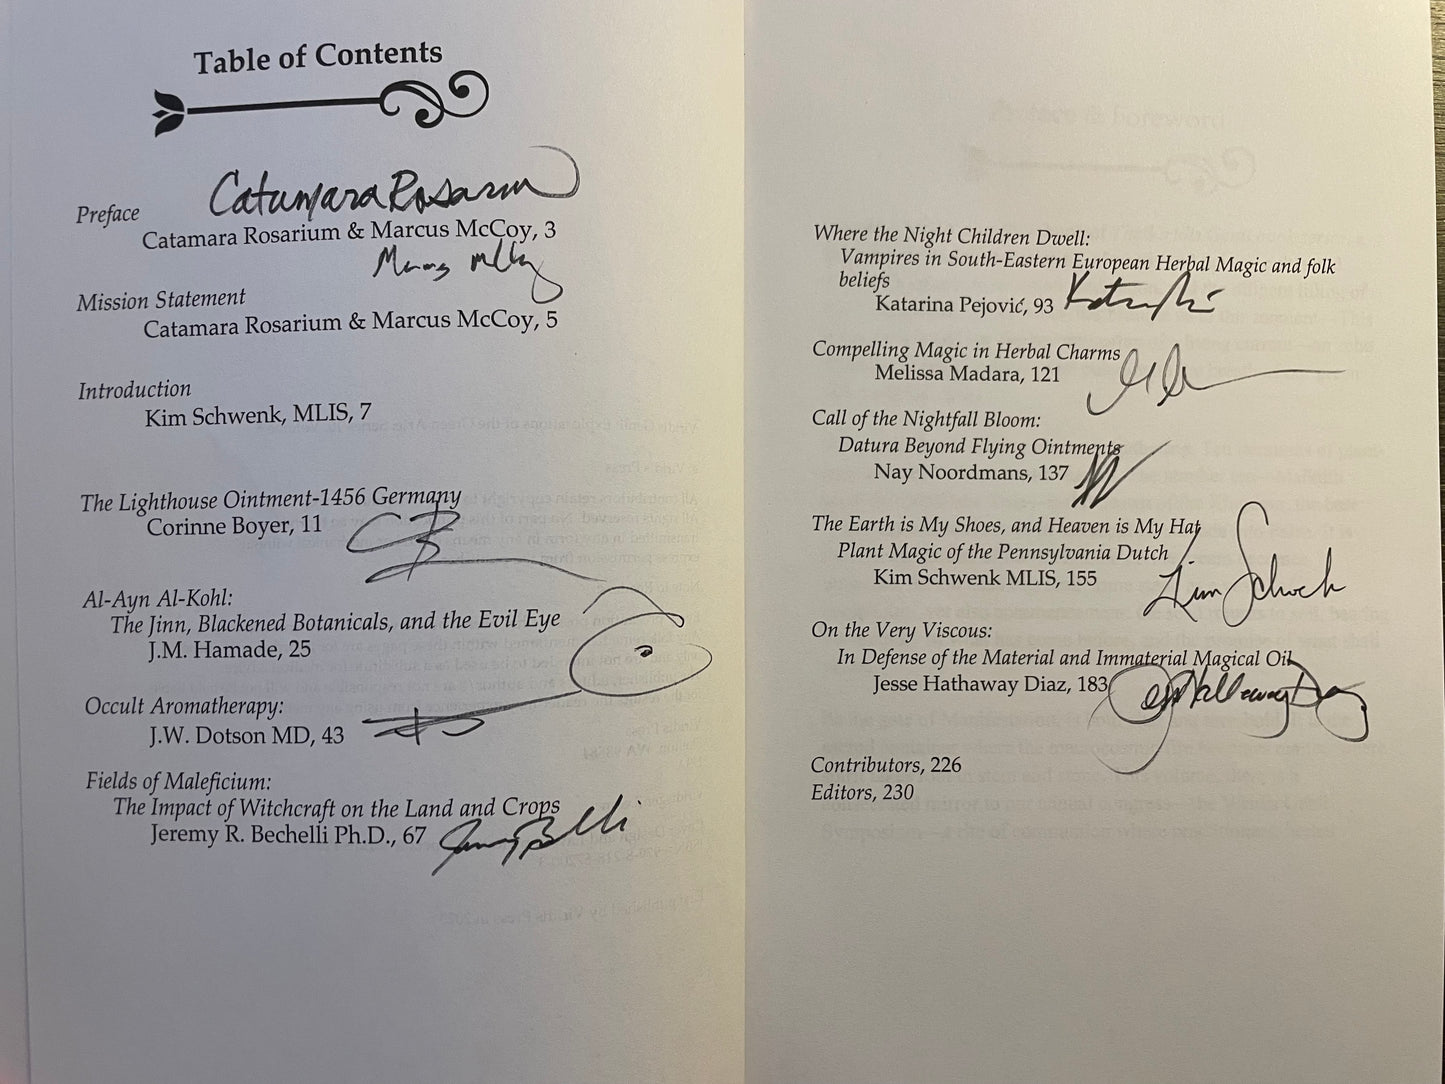 Table of Contents
Catamara Rosarium
Preface
Catamara Rosarium & Marcus McCoy, 3
Marcus McCoy
Mission Statement
Catamara Rosarium & Marcus McCoy, 5
Introduction
Kim Schwenk, MLIS, 7
The Lighthouse Ointment-1456 Germany
Corinne Boyer, 11
CB
Al-Ayn Al-Kohl:
The Jinn, Blackened Botanicals, and the Evil Eye
J.M. Hamade, 25
Occult Aromatherapy:
J.W. Dotson MD, 43
Fields of Maleficium:
The Impact of Witchcraft on the Land and Crops
Jeremy R. Bechelli Ph.D., 67
Where the Night Children Dwell:
Vampires in South-Eastern European Herbal Magic and folk
beliefs
Katarina Pejović, 93
Compelling Magic in Herbal Charms
Melissa Madara, 121
Call of the Nightfall Bloom:
Datura Beyond Flying Ointments
Nay Noordmans, 137
The Earth is My Shoes, and Heaven is My Hat
Plant Magic of the Pennsylvania Dutch
Kim Schwenk MLIS, 155
Kim Schwenk
On the Very Viscous:
In Defense of the Material and Immaterial Magical Oil
Jesse Hathaway Diaz, 183
Jesse Hathaway Diaz
Contributors, 226
Editors, 230